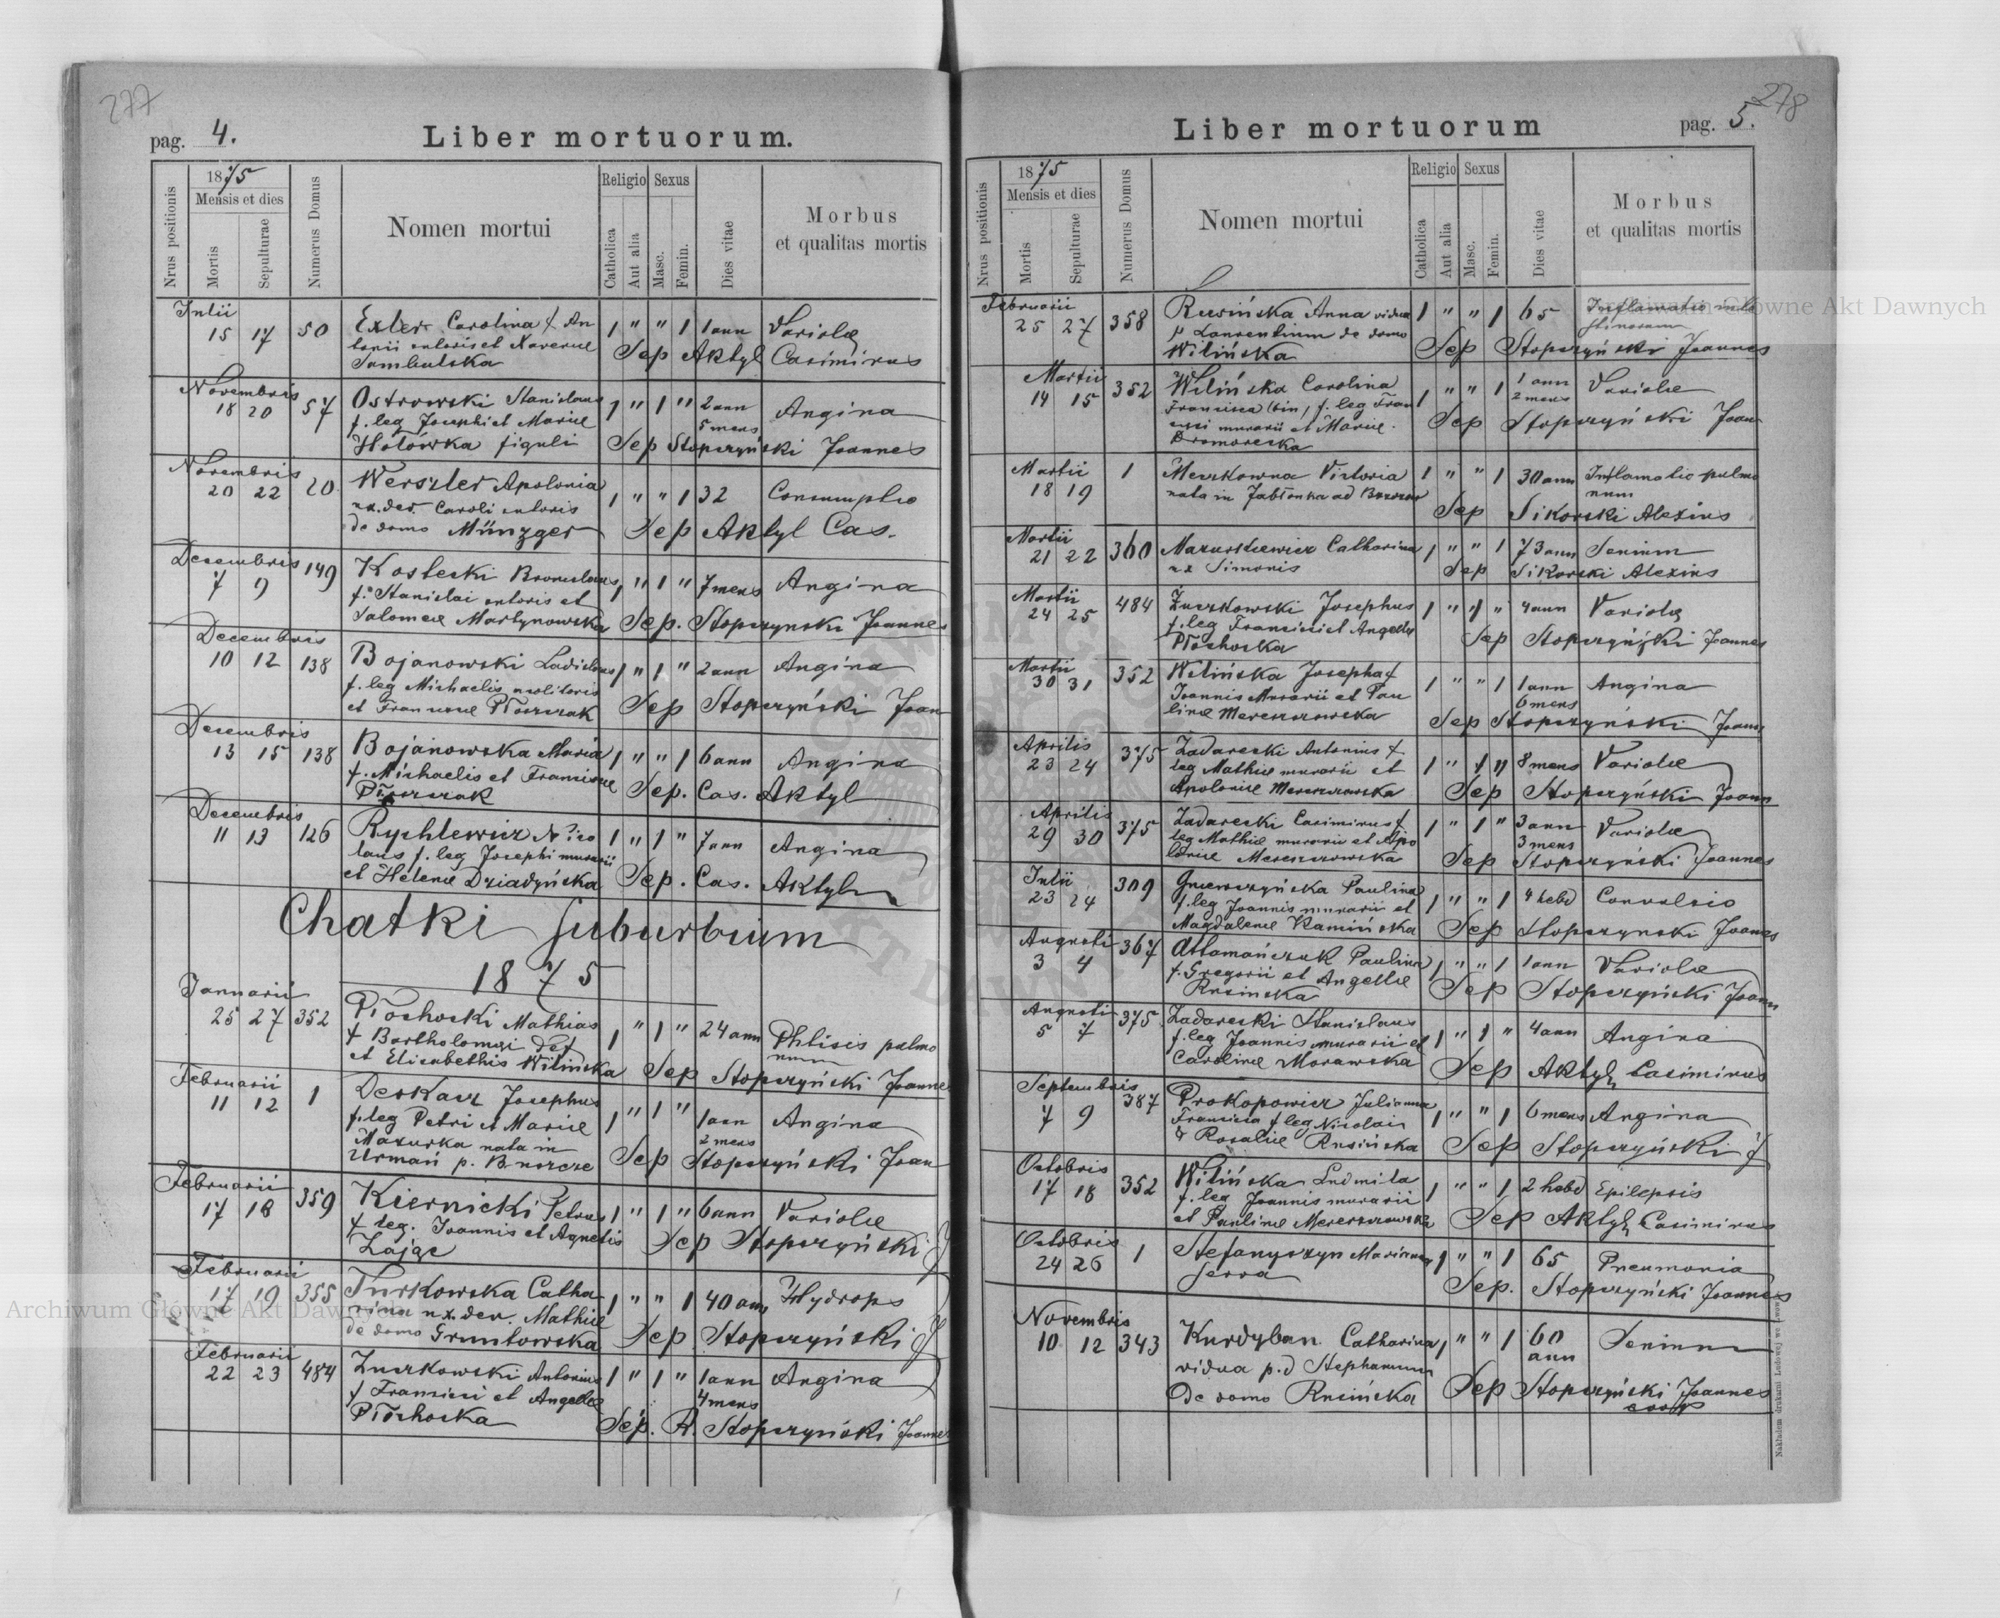 277
pag. 4.
Liber mortuorum.
Nrus positionis
1875
Mensis et dies
Mortis
Sepulturae
Numerus Domus
Nomen mortui
Religio
Catholica
Aut alia
Sexus
Masc.
Femin.
Dies vitae
Morbus
et qualitas mortis
Julii
15 17 50 Exler Carolina f. An 1 " " 1 1 ann Variolæ
tonii sutoris et Xaveriæ
Sambulska
Sep Aktyl Casimirus
Novembris
18 20 57 Ostrowski Stanislaus 1 " 1 " 2 ann Angina
f. leg Josephi et Mariæ 5 mens
Hołówka figuli Sep Stopczyński Joannes
Novembris
20 22 20 Werszler Apolonia 1 " " 1 32
ux. der. Caroli sutoris
de domo Münzger Sep Aktyl Cas.
Decembris
7 9 149 Kostecki Bronislaus 1 " 1 " 7 mens Angina
f. Stanislai sutoris et
Salomeæ Martynowska Sep. Stopczynski Joannes
Decembris
10 12 138 Bojanowski Ladislaus 1 " 1 " 2 ann Angina
f. leg Michaelis molitoris
et Franciscæ Płoszczak Sep Stopczyński Joan
Decembris
13 15 138 Bojanowska Maria 1 " " 1 6 ann Angina
f. Michaelis et Franciscæ
Sep. Cas. Aktyl
Decembris
11 13 126 Rychlewicz Nico 1 " 1 " 7 ann Angina
laus f. leg Josephi murarii
et Helenæ Dziadyńska Sep. Cas. Aktyl
Chatki suburbium
1875
Januarii
25 27 352 Płochocki Mathias 1 " 1 " 24 ann Phtisis pulmo
f Bartholomei def num
et Elisabethis Wilińska Sep Stopczyński Joanne
Februarii
11 12 1 Deskacz Josephus 1 " 1 " 1 ann Angina
f. leg Petri et Mariæ 2 mens
Mazurka nata in Sep Stopczyński Joan
Urmań p. Buszcze
Februarii
17 18 359 Kiernicki Petrus 1 " 1 " 6 ann Variolæ
f leg. Joannis et Agnetis
Zając Sep Stopczyński J
Februarii
17 19 355 Turkowska Catha 1 " " 1 40 ann Hydrops
rina ux. der. Mathiæ
de domo Gruntowska Sep Stopczyński J
Februarii
22 23 484 Zuczkowski Antonius 1 " 1 " 1 ann Angina
f Francisci et Angellæ 4 mens
Płochocka Sep. R. Stopczyński Joanne
278
Liber mortuorum
pag. 5.
Nrus positionis
1875
Mensis et dies
Mortis
Sepulturae
Numerus Domus
Nomen mortui
Religio
Catholica
Aut alia
Sexus
Masc.
Femin.
Dies vitae
Morbus
et qualitas mortis
Februarii
25 27 358 Rusińska Anna vidua 1 " " 1 65 Inflamatio inte
p Laurentium de domo stinorum
Wilińska Sep Stopczyński Joannes
Martii
14 15 352 Wilińska Carolina 1 " " 1 1 ann Variolæ
Francisca bin, f. leg Fran 2 mens
cisci murarii et Mariæ Sep Stopczyński Joan
Martii
18 19 1 Meszkowna Victoria 1 " " 1 30 ann Inflamatio pulmo
nata in Jabłonka ad num
Sep Sikorski Alexius
Martii
21 22 360 Mazurkiewicz Catharina 1 " " 1 73 ann Senium
ux Simonis Sep Sikorski Alexius
Martii
24 25 484 Zuczkowski Josephus 1 " 1 " 4 ann Variolæ
f. leg Francisci et Angellæ
Płochocka Sep Stopczyński Joannes
Martii
30 31 352 Wilińska Josepha f 1 " " 1 1 ann Angina
Joannis Murarii et Pau 6 mens
linæ Mereszczowska Sep Stopczyński Joann
Aprilis
23 24 375 Zadarecki Antonius f 1 " 1 " 8 mens Variolæ
leg Mathiæ murarii et
Apoloniæ Mereszczowska Sep Stopczyński Joann
Aprilis
29 30 375 Zadarecki Casimirus f 1 " 1 " 3 ann Variolæ
leg Mathiæ murarii et Apo 3 mens
loniæ Mereszczowska Sep Stopczyński Joannes
Julii
23 24 309 Gniewczyńska Paulina 1 " " 1 4 hebd Convulsio
f. leg Joannis murarii et
Magdalenæ Kamińska Sep Stopczynski Joannes
Augusti
3 4 367 Attamańczuk Paulina 1 " " 1 1 ann Variolæ
f. Gregorii et Angellæ
Rusinska Sep Stopczyński Joann
Augusti
5 7 375 Zadarecki Stanislaus 1 " 1 " 4 ann Angina
f. leg Joannis murarii et
Carolinæ Morawska Sep Aktyl Casimirus
Septembris
7 9 387 Prokopowicz Julianna 1 " " 1 6 mens Angina
Francisca f leg Nicolai
& Rosaliæ Rusińska Sep Stopczyński J
Octobris
17 18 352 Wilińska Ludmila 1 " " 1 2 hebd Epilepsis
f. leg Joannis murarii
et Paulinæ Mereszczowska Sep Aktyl Casimirus
Octobris
24 26 1 Stefanyszyn Marianna 1 " " 1 65 Pneumonia
serva Sep. Stopczyński Joannes
Novembris
10 12 343 Kurdyban Catharina 1 " " 1 60 Senium
ann
vidua p.d Stephanum
de domo Rusińska Sep Stopczyński Joannes
coops
Nakładem drukarni Ludowej we Lwowie
Archiwum Główne Akt Dawnych
Archiwum Główne Akt Dawnych